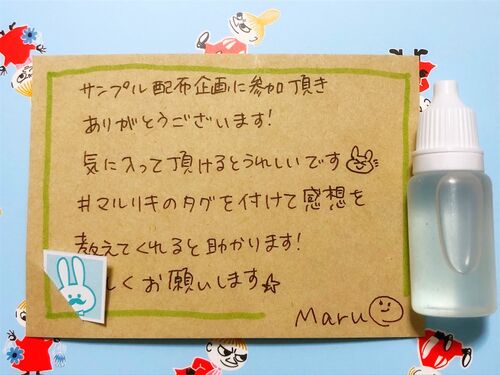 サンプル配布企画に参加頂き
ありがとうございます!
気に入って頂けるとうれしいです
#マルリキのタグを付けて感想を
教えてくれると助かります!
しくお願いします☆
Maru